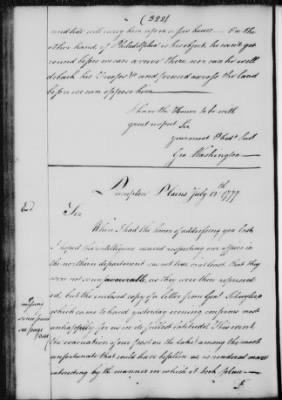 (322)
and tide will carry him up in a few hours. On the
other hand, if Philadelphia is his object, he can't get
round before we can arrive there nor can he well
debark his Troops &c and proceed across the land
before we can oppose him
I have the Honor to be with
great respect Sir
your most Obed Servt
Go Washington
Pompton Plains July 12th 1777
Sir
When I had the honor of addressing you last
I hoped the intelligence received respecting our affairs in
the northern department was not true or at least that they
were not so unfavourable, as they were then represent
ed; but the enclosed copy of a letter from Genl Schuyler
which came to hand yesterday evening confirms most
unhappily for us in its fullest latitude. This event
the evacuation of our post on the lake) among the most
unfortunate that could have befallen us is rendered more
so by the manner in which it took place